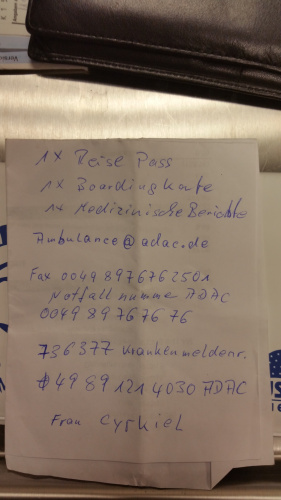 1x Reise Pass
1x Boardingkarte
1x Medizinische Berichte
Ambulance@adac.de
Fax 0049 89 76762501
Notfallnummer ADAC
0049 89 76 76 76
736377 Krankenmeldenr.
+49 89 121 4030 ADAC
Frau Cyrkiel